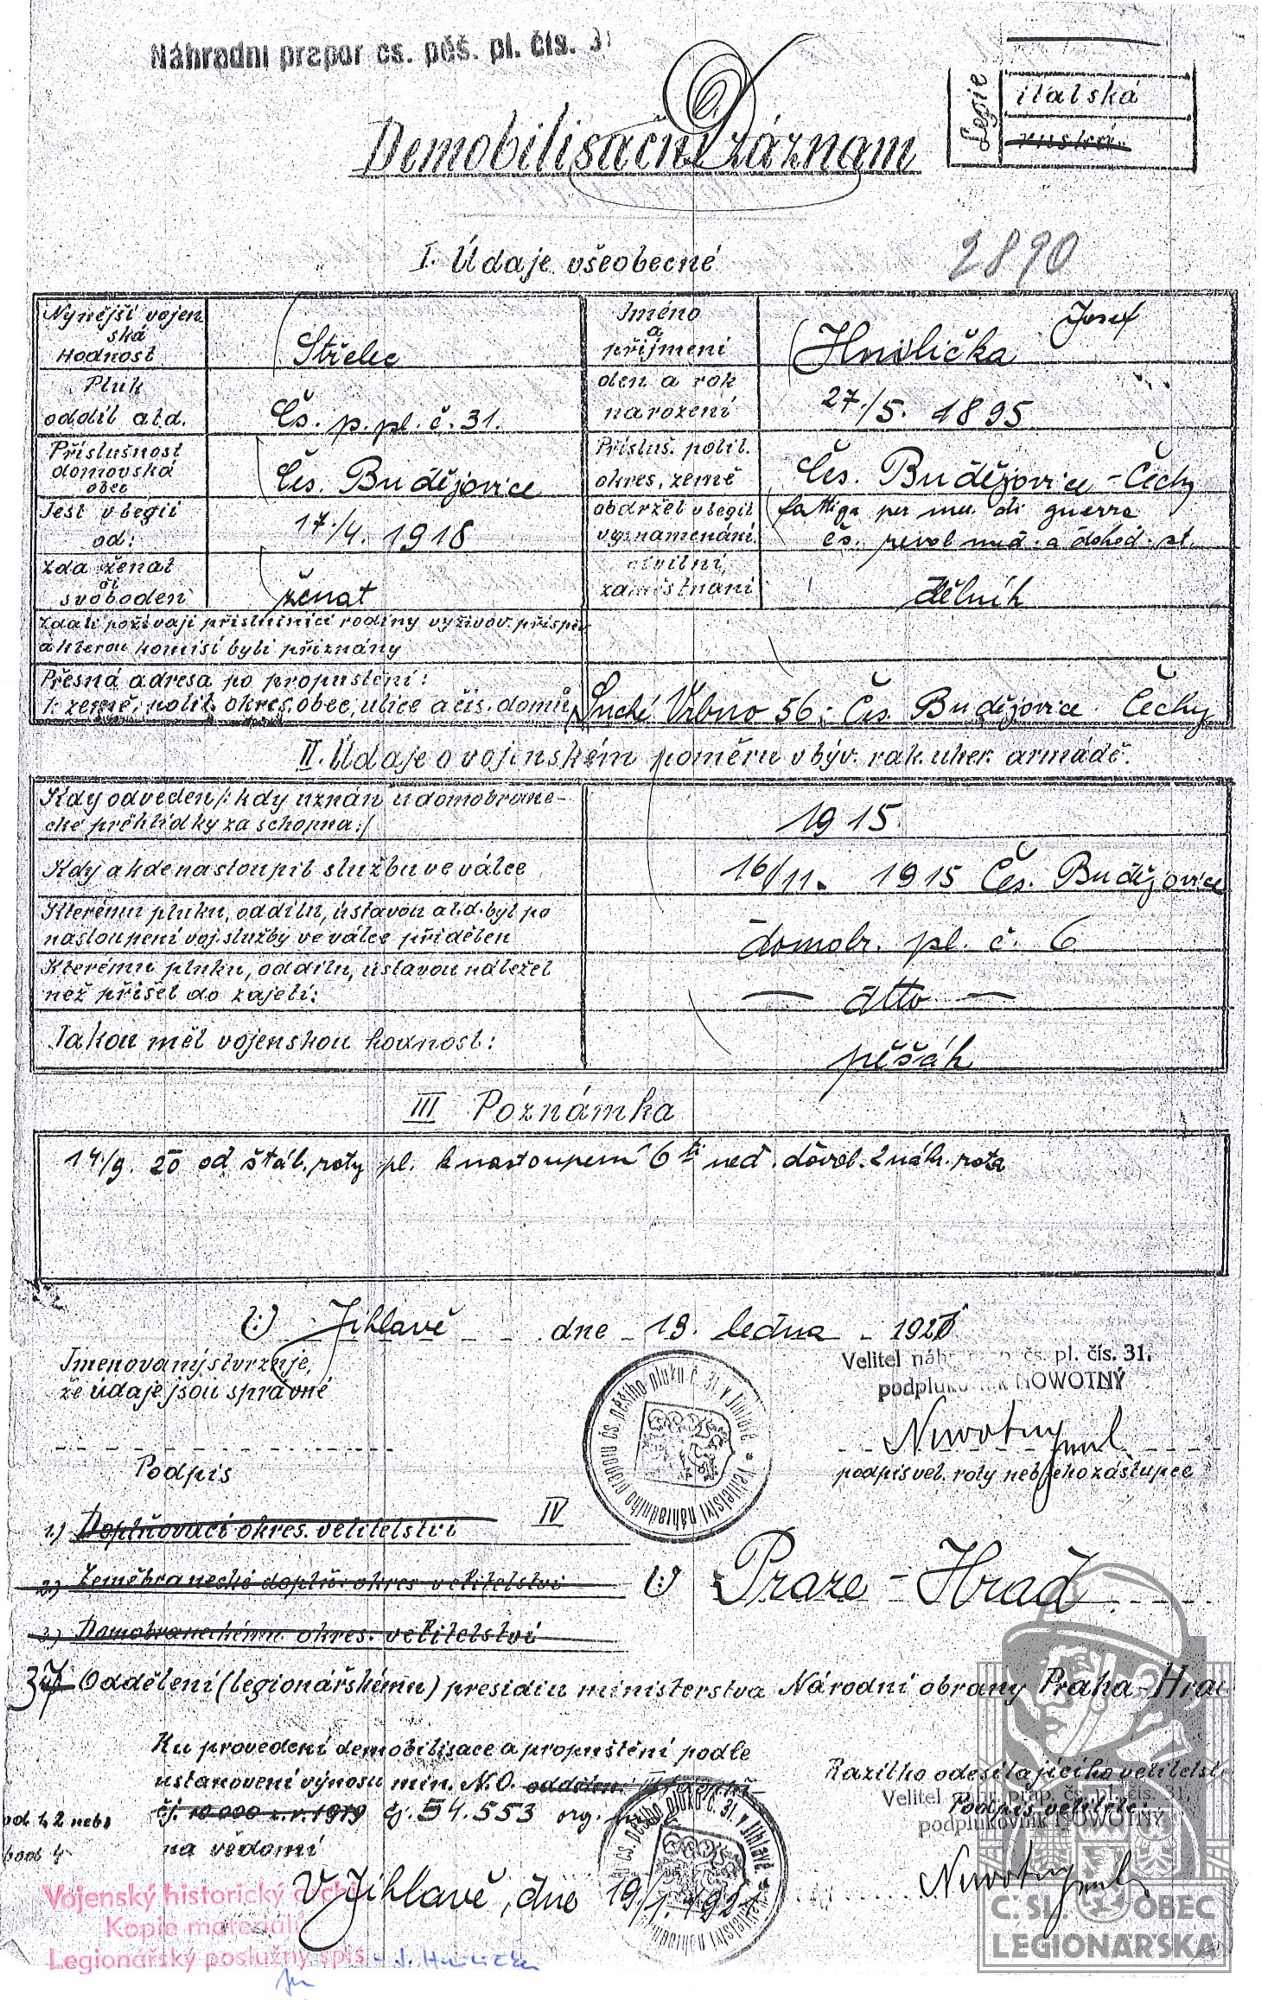 Náhradní prapor čs. pěš. pl. čís. 31
Legie
italská
ruská.
Demobilisační záznam
2890
I. Údaje všeobecné
Nynější vojenská Hodnost
Střelec
Jméno a příjmení
Josef
Hnilička
Pluk oddíl atd.
Čs. p. pl. č. 31.
den a rok narození
27./5. 1895.
Příslušnost domovská obec
Čes. Budějovice
Přísluš. polit. okres, země
Čes. Budějovice - Čechy
Jest v legii od:
17./4. 1918
obdržel v legii vyznamenání
fattiga per mu. di guerra
čs. revol med. a dohod. pl.
Zda ženat či svoboden
ženat
civilní zaměstnání
dělník
Zdali požívají příslušníci rodiny vyživov. příspěv
a kterou komisí byli přiznány
Přesná adresa po propuštění:
/: země, polit. okres, obec, ulice a čís. domu
Suché Vrbno 56; Čes. Budějovice. Čechy
II. Údaje o vojinském poměru v býv. rak. uher. armádě.
Kdy odveden /: kdy uznán u domobrane-
cké prohlídky za schopna :/
1915.
Kdy a kde nastoupil službu ve válce
16/11. 1915 Čes. Budějovice
Kterému pluku, oddílu, ústavou atd. byl po
nastoupení voj. služby ve válce přidělen
domobr. pl. č. 6
Kterému pluku, oddílu, ústavou náležel
než přišel do zajetí:
— dtto —
Jakou měl vojenskou hodnost:
pěšák
III Poznámka
14./9. 20 od štáb. roty pl. k nastoupení 6 ti ned. dovol. 2 náhr. rota
V Jihlavě dne 19. ledna 1921
Jmenovaný stvrzuje,
že údaje jsou správné
Velitel náhr. čs. pl. čís. 31.
podplukovník NOWOTNÝ
Nowotny
Podpis
podpis vel. roty neb jeho zástupce
Velitelství náhradního praporu čs. pěšího pluku č. 31 v Jihlavě
IV
1.) Doplňovací okres. velitelství
2.) Zeměbranecké doplň. okres velitelství
V Praze - Hrad
3.) Domobraneckému okres. velitelství
3 Oddělení (legionářskému) presidiu ministerstva Národní obrany Praha-Hrad
Ku provedení demobilisace a propuštění podle
ustanovení výnosu min. N.O. oddělen.
čj. 10.000 z. r. 1919 čj. 54.553 org.
na vědomí
od 1, 2 nebo
bod 4
Razítko odesílajícího velitelst
Velitel náhr. prap. čs. pl. čís. 31.
Podpis velitele:
podplukovník NOWOTNÝ
Nowotny
V Jihlavě, dne 19./1. 1921
Vojenský historický archiv
Kopie materiálu
Legionářský poslužný spis - J. Hnilička
Č. SL. OBEC
LEGIONÁŘSKÁ